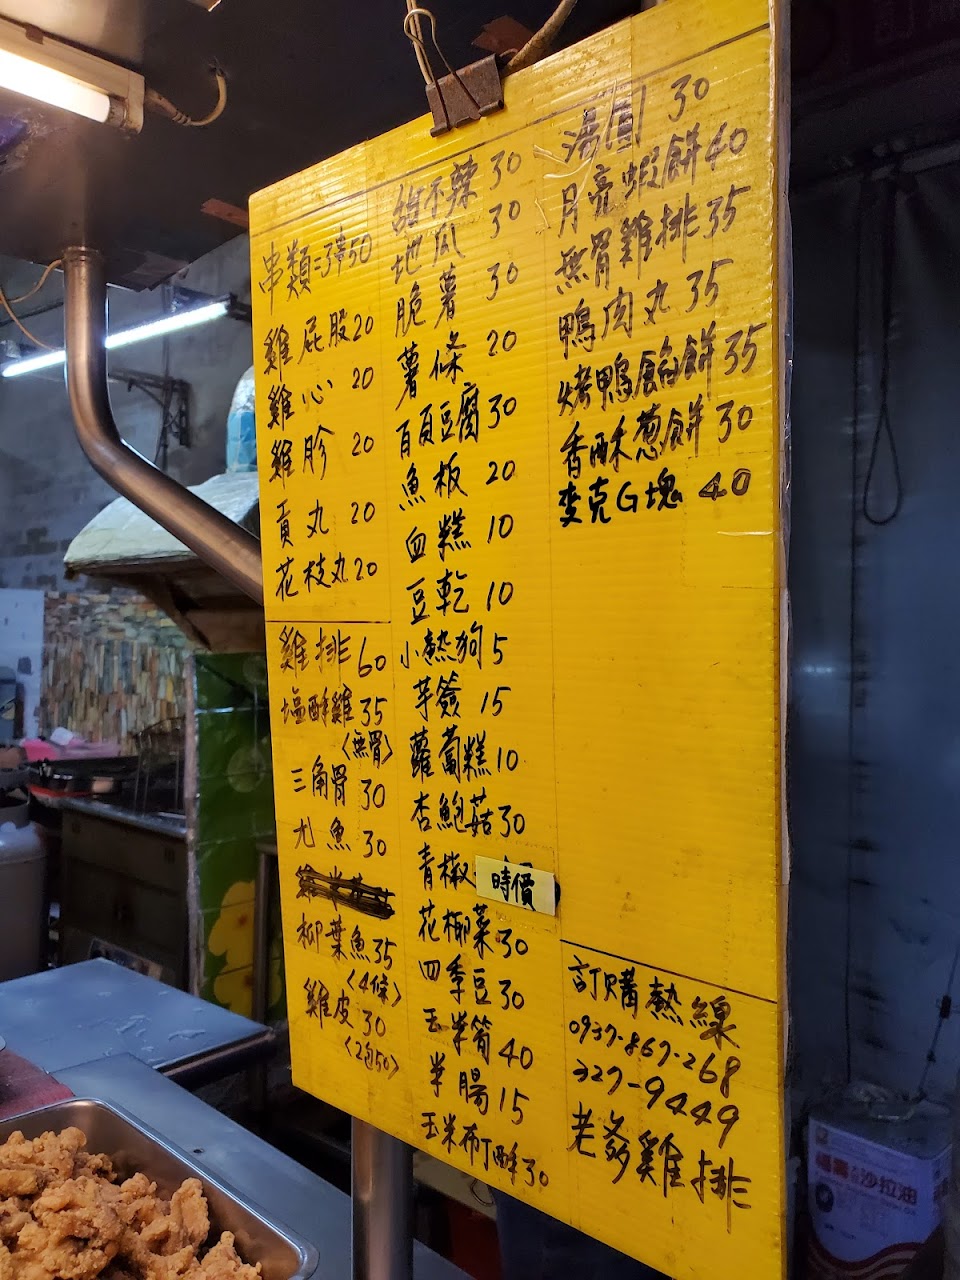 串類=3串50
雞屁股20
雞心 20
雞胗 20
貢丸 20
花枝丸20
雞排60
塩酥雞35
<無骨>
三角骨30
尤魚30
柳葉魚35
<4條>
雞皮30
<2包50>
甜不辣30
地瓜 30
脆薯 30
薯條 20
百頁豆腐30
魚板 20
血糕 10
豆乾 10
小熱狗5
芋簽 15
蘿蔔糕10
杏鮑菇30
青椒 時價
花椰菜30
四季豆30
玉米筍40
米腸15
玉米布丁酥30
湯圓 30
月亮蝦餅40
無骨雞排35
鴨肉丸35
烤鴨餡餅35
香酥蔥餅30
麥克G塊 40
訂購熱線
0937-867-268
327-9449
老爹雞排
沙拉油